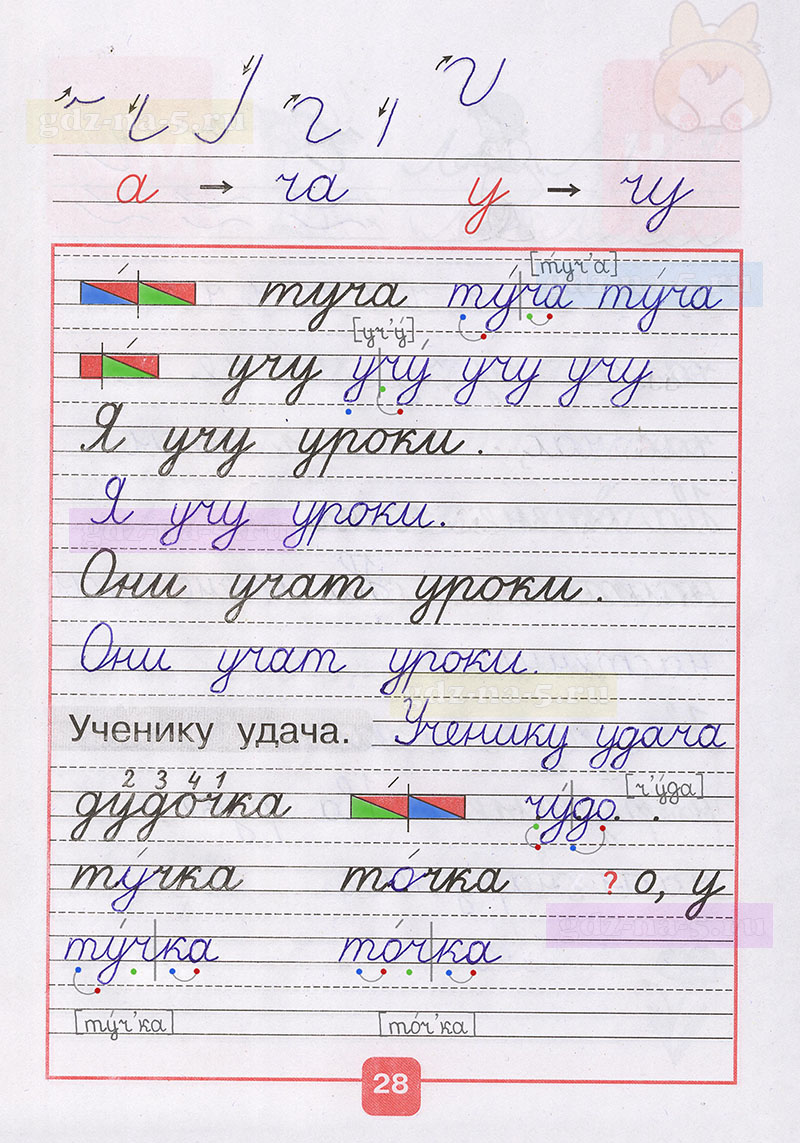 gdz-na-5.ru
а → ча у → чу
[туч'а]
туча ту́|ча ту́ча
[уч'у́]
учу у|чу́ учу учу
Я учу уроки.
Я учу уроки.
Они учат уроки.
Они учат уроки.
gdz-na-5.ru
Ученику удача. Ученику удача
2 3 4 1
дудочка чу́|до. . [ч'у́да]
ту́чка то́чка ? о, у
gdz-na-5.ru
ту́ч|ка то́ч|ка
[ту́ч'ка] [то́ч'ка]
28